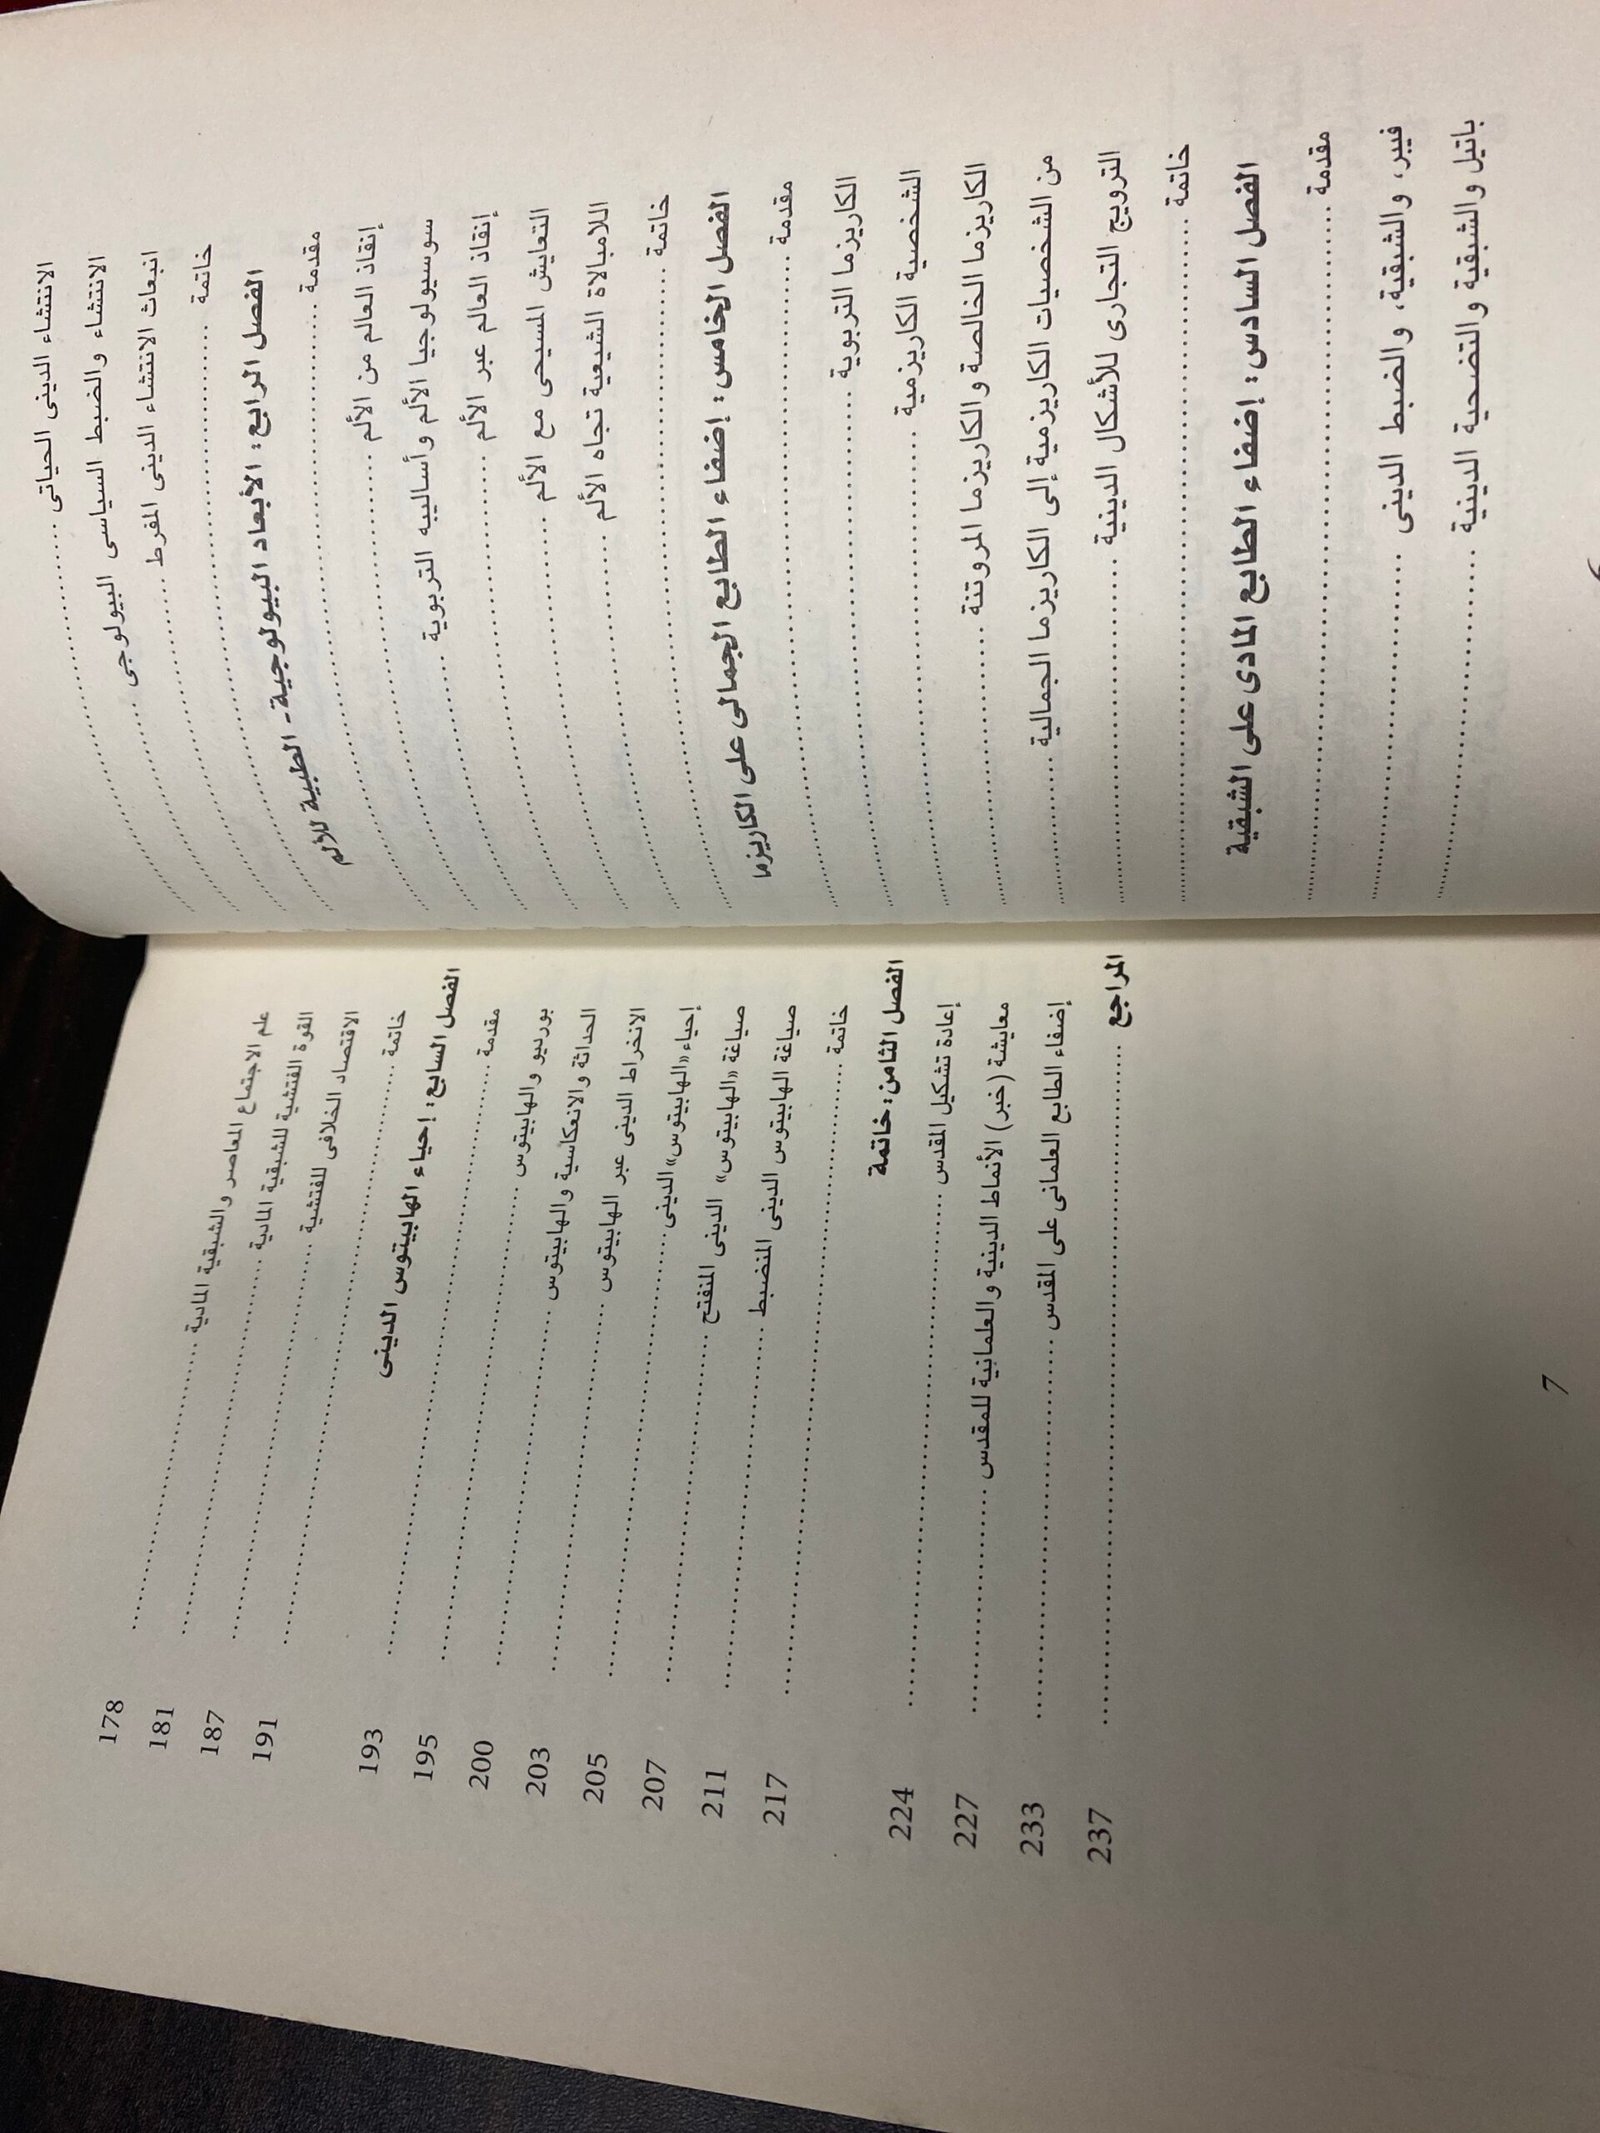 الانتشاء الدينى الحياتى ..........
الانتشاء والضبط السياسى البيولوجى ..........
انبعاث الانتشاء الدينى المفرط ..........
خاتمة ..........
الفصل الرابع: الأبعاد البيولوجية - الطبية للألم
مقدمة ..........
إنقاذ العالم من الألم ..........
سوسيولوجيا الألم وأساليبه التربوية ..........
إنقاذ العالم عبر الألم ..........
التعايش المسيحى مع الألم ..........
اللامبالاة الشيعية تجاه الألم ..........
خاتمة ..........
الفصل الخامس: إضفاء الطابع الجمالى على الكاريزما
مقدمة ..........
الكاريزما التربوية ..........
الشخصية الكاريزمية ..........
الكاريزما الخالصة والكاريزما المروتنة ..........
من الشخصيات الكاريزمية إلى الكاريزما الجمالية ..........
الترويج التجارى للأشكال الدينية ..........
خاتمة ..........
الفصل السادس: إضفاء الطابع المادى على الشبقية
مقدمة ..........
فيبر، والشبقية، والضبط الدينى ..........
باتيل والشبقية والتضحية الدينية ..........
علم الاجتماع المعاصر والشبقية المادية .......... 178
القوة الفتشية للشبقية المادية .......... 181
الاقتصاد الخلافى للفتشية .......... 187
خاتمة .......... 191
الفصل السابع: إحياء الهابيتوس الدينى
مقدمة .......... 193
بورديو والهابيتوس .......... 195
الحداثة والانعكاسية والهابيتوس .......... 200
الانخراط الدينى عبر الهابيتوس .......... 203
إحياء «الهابيتوس» الدينى .......... 205
صياغة «الهابيتوس» الدينى المنفتح .......... 207
صياغة الهابيتوس الدينى المنضبط .......... 211
خاتمة .......... 217
الفصل الثامن: خاتمة
إعادة تشكيل المقدس .......... 224
معايشة (خبر) الأنماط الدينية والعلمانية للمقدس .......... 227
إضفاء الطابع العلمانى على المقدس .......... 233
المراجع .......... 237
7